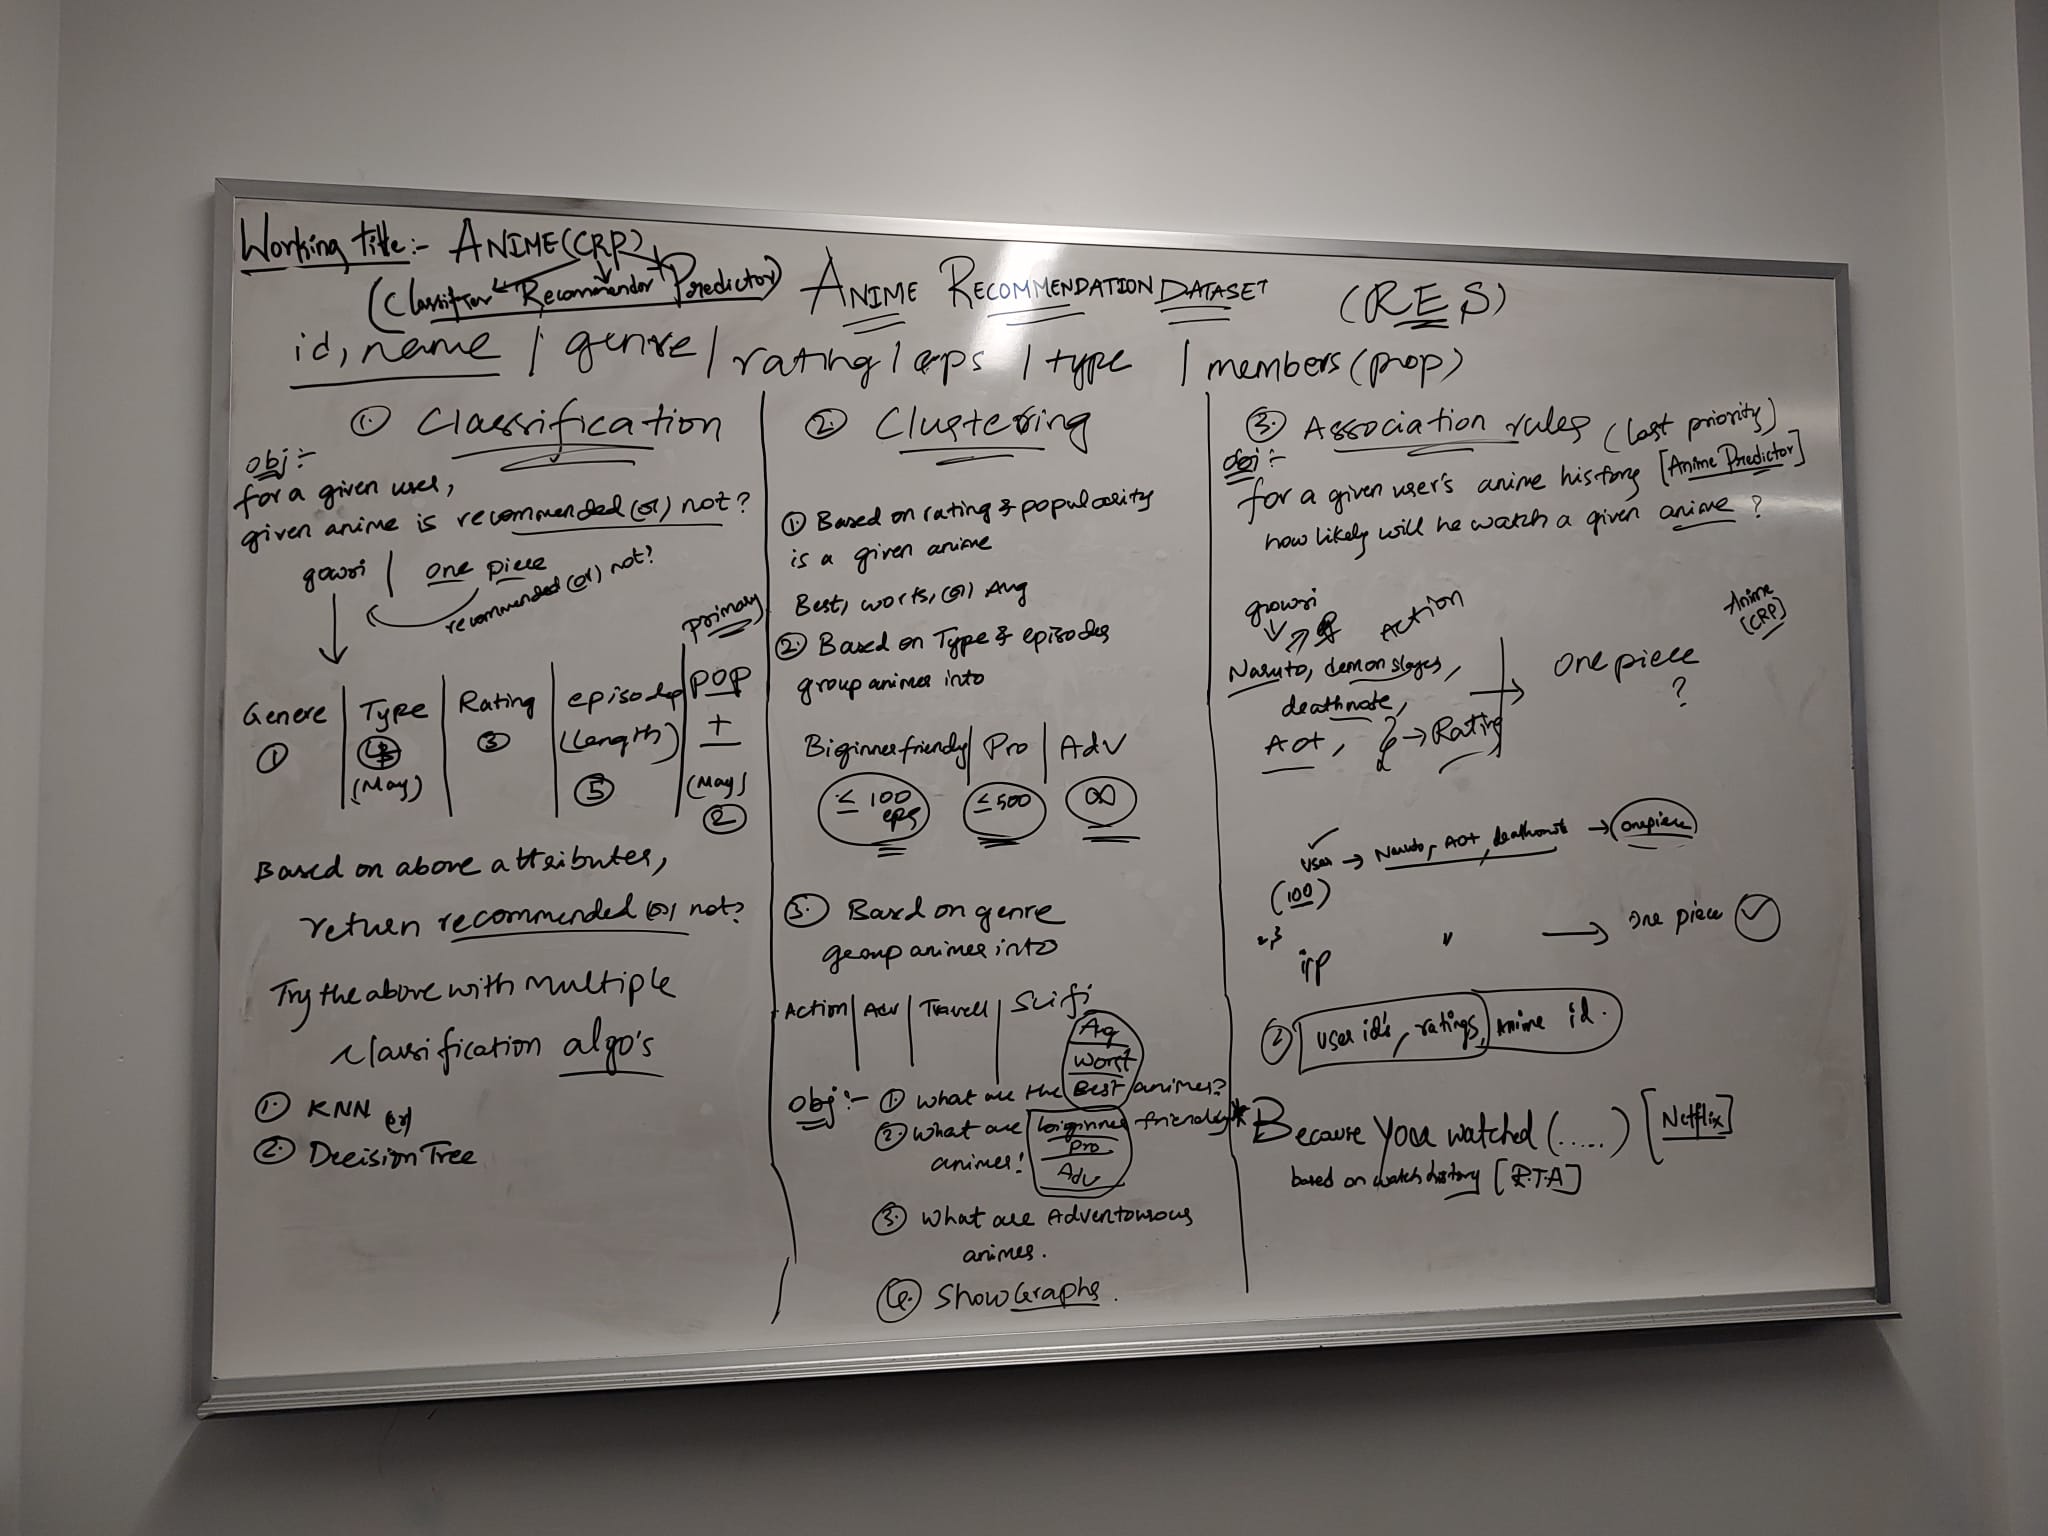 Working title:- ANIME(CRP)
(Classifier Recommendor Predictor)
ANIME RECOMMENDATION DATASET (RES)
id, name / genre / rating / eps / type / members (pop)
① Classification
obj:-
for a given user,
given anime is recommended (or) not?
gowri | one piece
recommended (or) not?
primary
Genere | Type | Rating | episodes | pop
(Length) +
① (May) ③ ⑤ (May) ②
Based on above attributes,
return recommended (or) not?
Try the above with multiple
classification algo's
①. KNN (or)
②. Decision Tree
②. Clustering
①. Based on rating & popularity
is a given anime
Best, worts, (or) Avg
②. Based on Type & episodes
group animes into
Biginner friendly | Pro | Adv
≤ 100 eps ≤ 500 ∞
③. Based on genre
group animes into
Action | Adv | Travell | Scifi
Obj:- ① What are the Best animes?
Worst
②. What are biginner friendly
animes!
Pro
Adv
③. What are Adventourous
animes.
④. Show Graphs.
③. Association rules (last priority)
obj:-
for a given user's anime history [Anime Predictor]
how likely will he watch a given anime?
Action
Anime
[CRP]
Naruto, demon slayer,
deathnote,
Aot, → Rating
→ One piece
?
user → Naruto, AOT, deathnote → onepiece
(100)
→ One piece ✓
② user id's, ratings, Anime id.
* Because you watched (.....) [Netflix]
based on watch history [R.T.A]